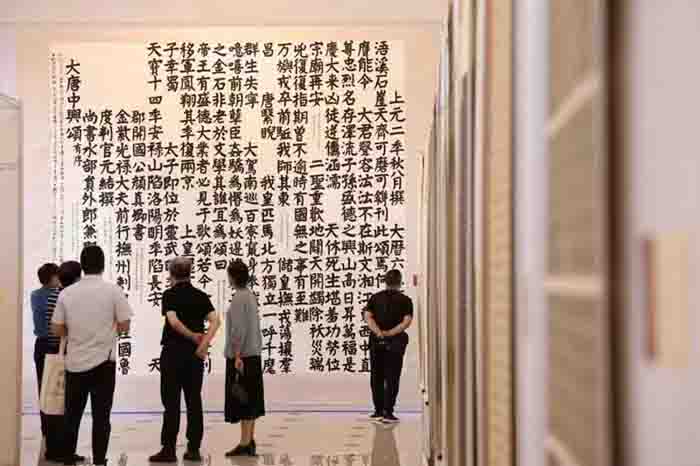 大唐中興頌 有序
尚書水部員外郎兼
度判官元結撰
金紫光祿大夫前行撫州刺
郡開國公顏真卿書
天寶十四年安祿山陷洛陽明年陷長安 天
子幸蜀 太子即位於靈武
移軍鳳翔其年復兩京 上皇
帝王有盛德大業者必見于歌頌若今
之金石非老於文學其誰宜為頌曰
噫嘻前朝孽臣姦驕為惛為妖邊
群生失寧 大駕南巡百寮竄身
昌 唐繄睨 我皇匹馬北方獨立一呼千麾
萬旟戎卒前驅我師其東 儲皇撫戎蕩攘群
兇復復指期曾不逾時有國無之事有至難
宗廟再安 二聖重歡地闢天開蠲除祅災瑞
慶大來凶徒逆儔涵濡 天休死生堪羞功勞位
尊忠烈名存澤流子孫盛德之興山高日昇萬福是
膺能令 大君聲容沄沄不在斯文湘江東西中直
浯溪石崖天齊可磨可鐫刊此頌焉何
上元二年秋八月撰 大曆六